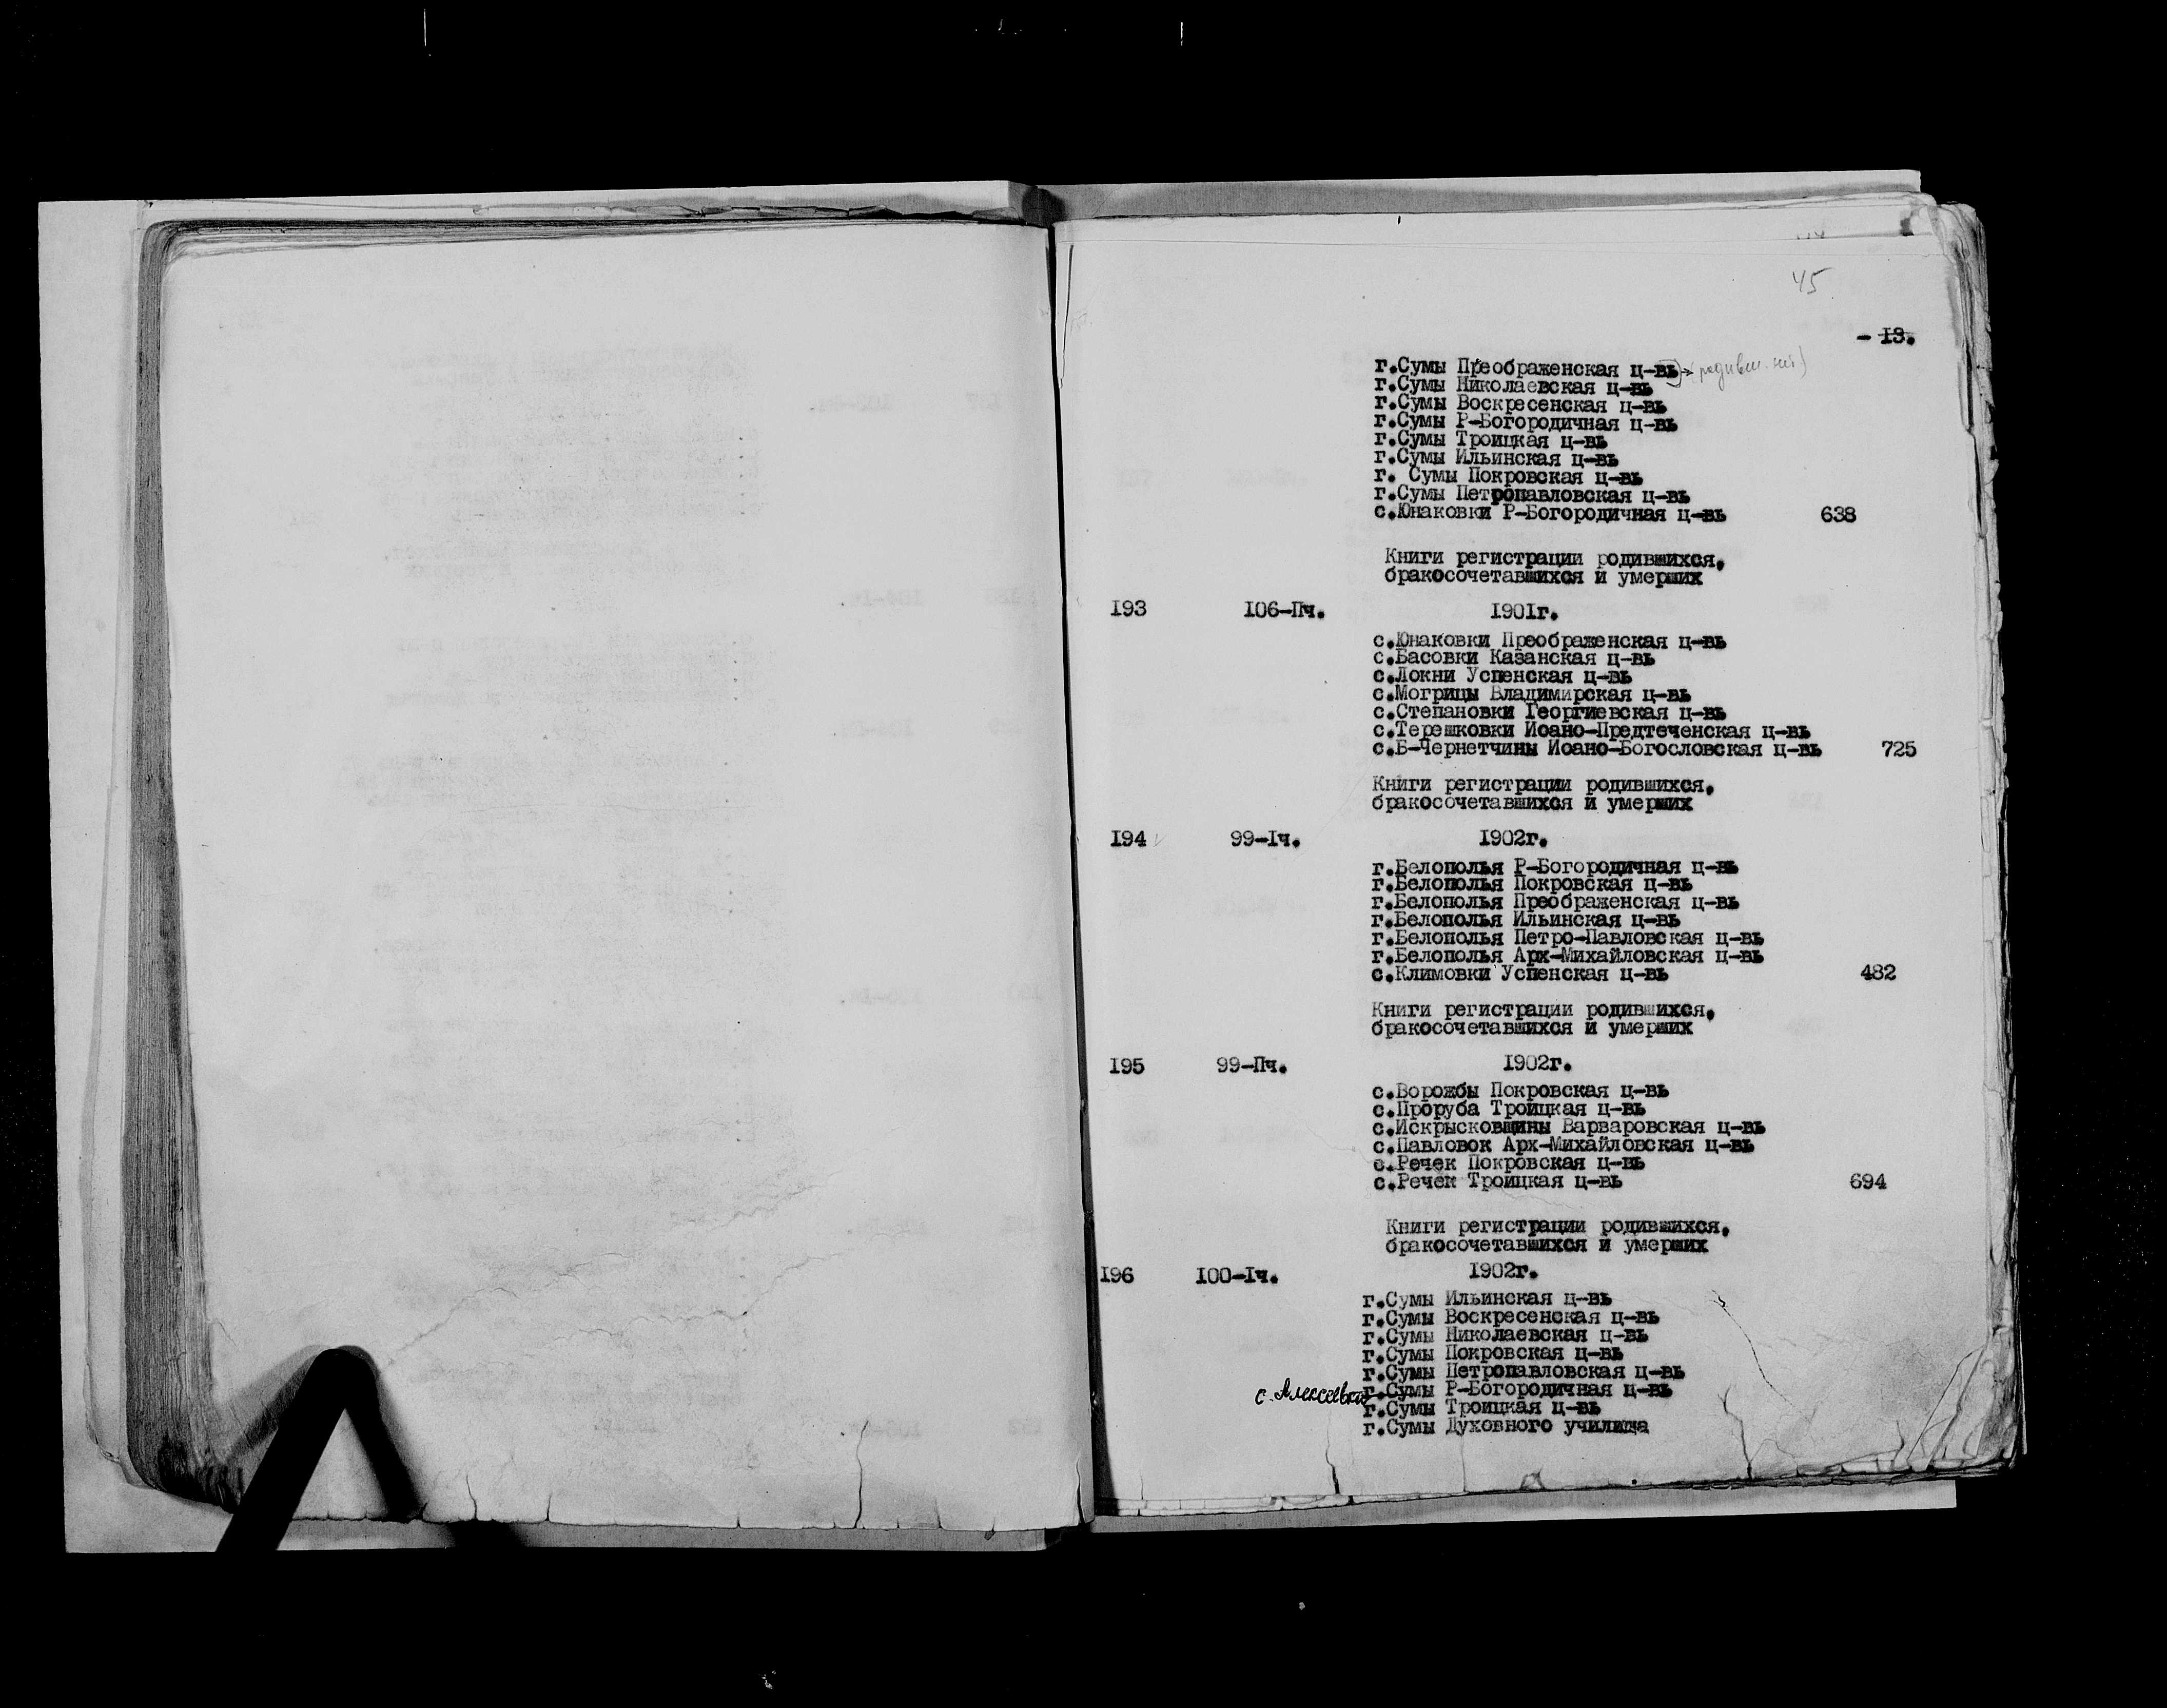 45
- 13.
г.Сумы Преображенская ц-вь
г.Сумы Николаевская ц-вь
г.Сумы Воскресенская ц-вь
г.Сумы Р-Богородичная ц-вь
г.Сумы Троицкая ц-вь
г.Сумы Ильинская ц-вь
г. Сумы Покровская ц-вь
г.Сумы Петропавловская ц-вь
с.Юнаковки Р-Богородичная ц-вь 638
Книги регистрации родившихся,
бракосочетавшихся и умерших
193 106-Пч. 1901г.
с.Юнаковки Преображенская ц-вь
с.Басовки Казанская ц-вь
с.Локни Успенская ц-вь
с.Могрицы Владимирская ц-вь
с.Степановки Георгиевская ц-вь
с.Терешковки Иоано-Предтеченская ц-вь
с.Б-Чернетчины Иоано-Богословская ц-вь 725
Книги регистрации родившихся,
бракосочетавшихся и умерших
194 99-Iч. 1902г.
г.Белополья Р-Богородичная ц-вь
г.Белополья Покровская ц-вь
г.Белополья Преображенская ц-вь
г.Белополья Ильинская ц-вь
г.Белополья Петро-Павловская ц-вь
г.Белополья Арх-Михайловская ц-вь
с.Климовки Успенская ц-вь 482
Книги регистрации родившихся,
бракосочетавшихся и умерших
195 99-Пч. 1902г.
с.Ворожбы Покровская ц-вь
с.Проруба Троицкая ц-вь
с.Искрысковщины Варваровская ц-вь
с.Павловок Арх-Михайловская ц-вь
с.Речек Покровская ц-вь
с.Речек Троицкая ц-вь 694
Книги регистрации родившихся,
бракосочетавшихся и умерших
196 100-Iч. 1902г.
г.Сумы Ильинская ц-вь
г.Сумы Воскресенская ц-вь
г.Сумы Николаевская ц-вь
г.Сумы Покровская ц-вь
г.Сумы Петропавловская ц-вь
с. Алексеевка г.Сумы Р-Богородичная ц-вь
г.Сумы Троицкая ц-вь
г.Сумы Духовного училища